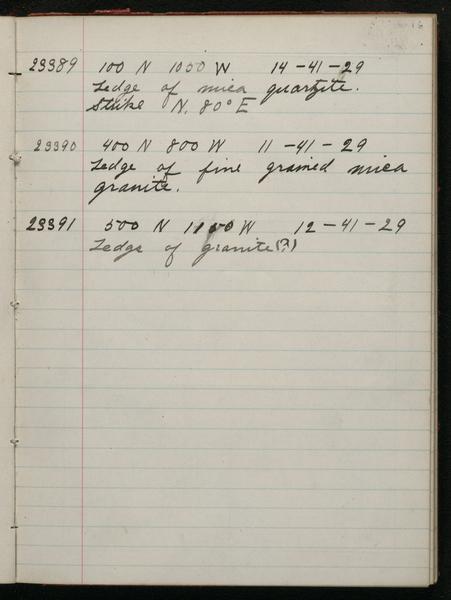 16
23389 100 N 1050 W 14-41-29
Ledge of mica quartzite.
Strike N. 80° E
23390 400 N 800 W 11-41-29
Ledge of fine grained mica
granite.
23391 500 N 1100 W 12-41-29
Ledge of granite(?)